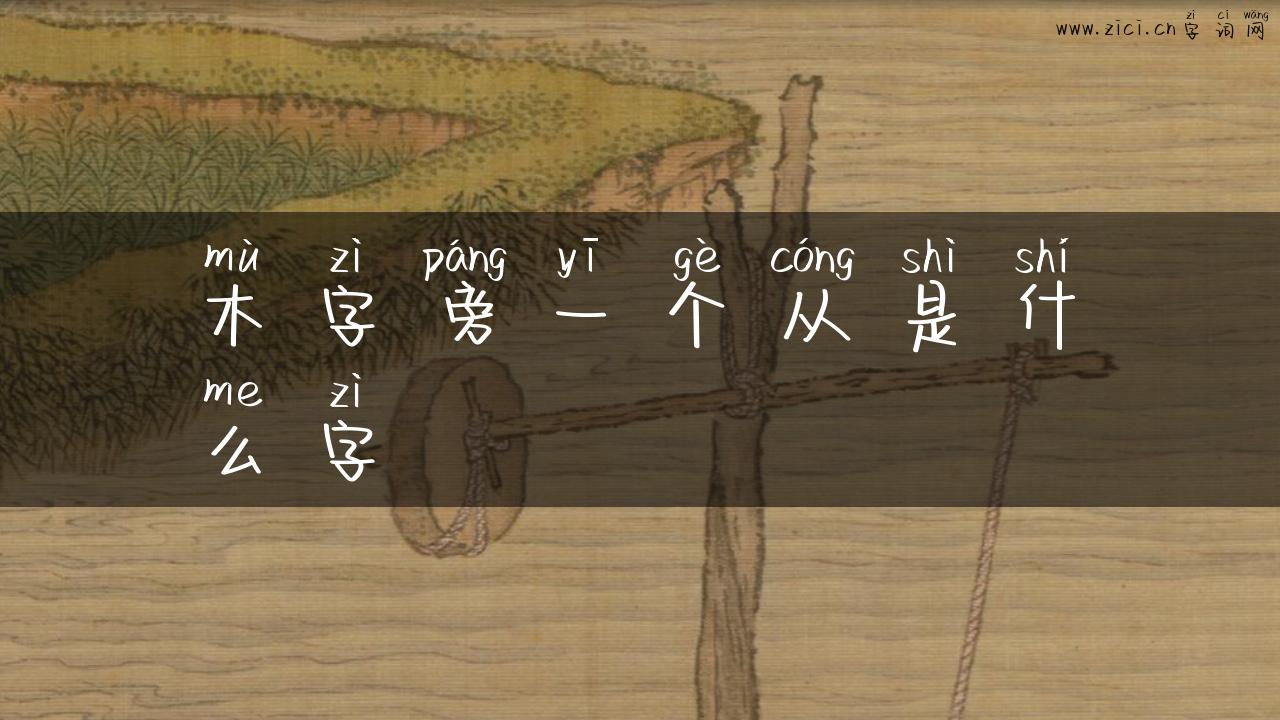 zì cí wǎng
www.zici.cn 字词网
mù zì páng yī gè cóng shì shí
木字旁一个从是什
me zì
么字